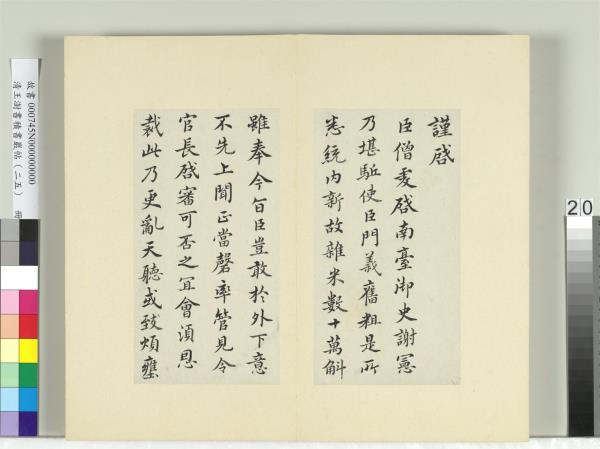 謹啓
臣僧虔啓南臺御史謝憲
乃堪驅使臣門義舊粗是所
悉統內新故雜米數十萬斛
雖奉今旨臣豈敢於外下意
不先上聞正當罄率管見令
官長啓審可否之宜會須恩
裁此乃更亂天聽或致煩壅
故書 000745N000000000
清王澍書積書巖帖(二五) 冊
20